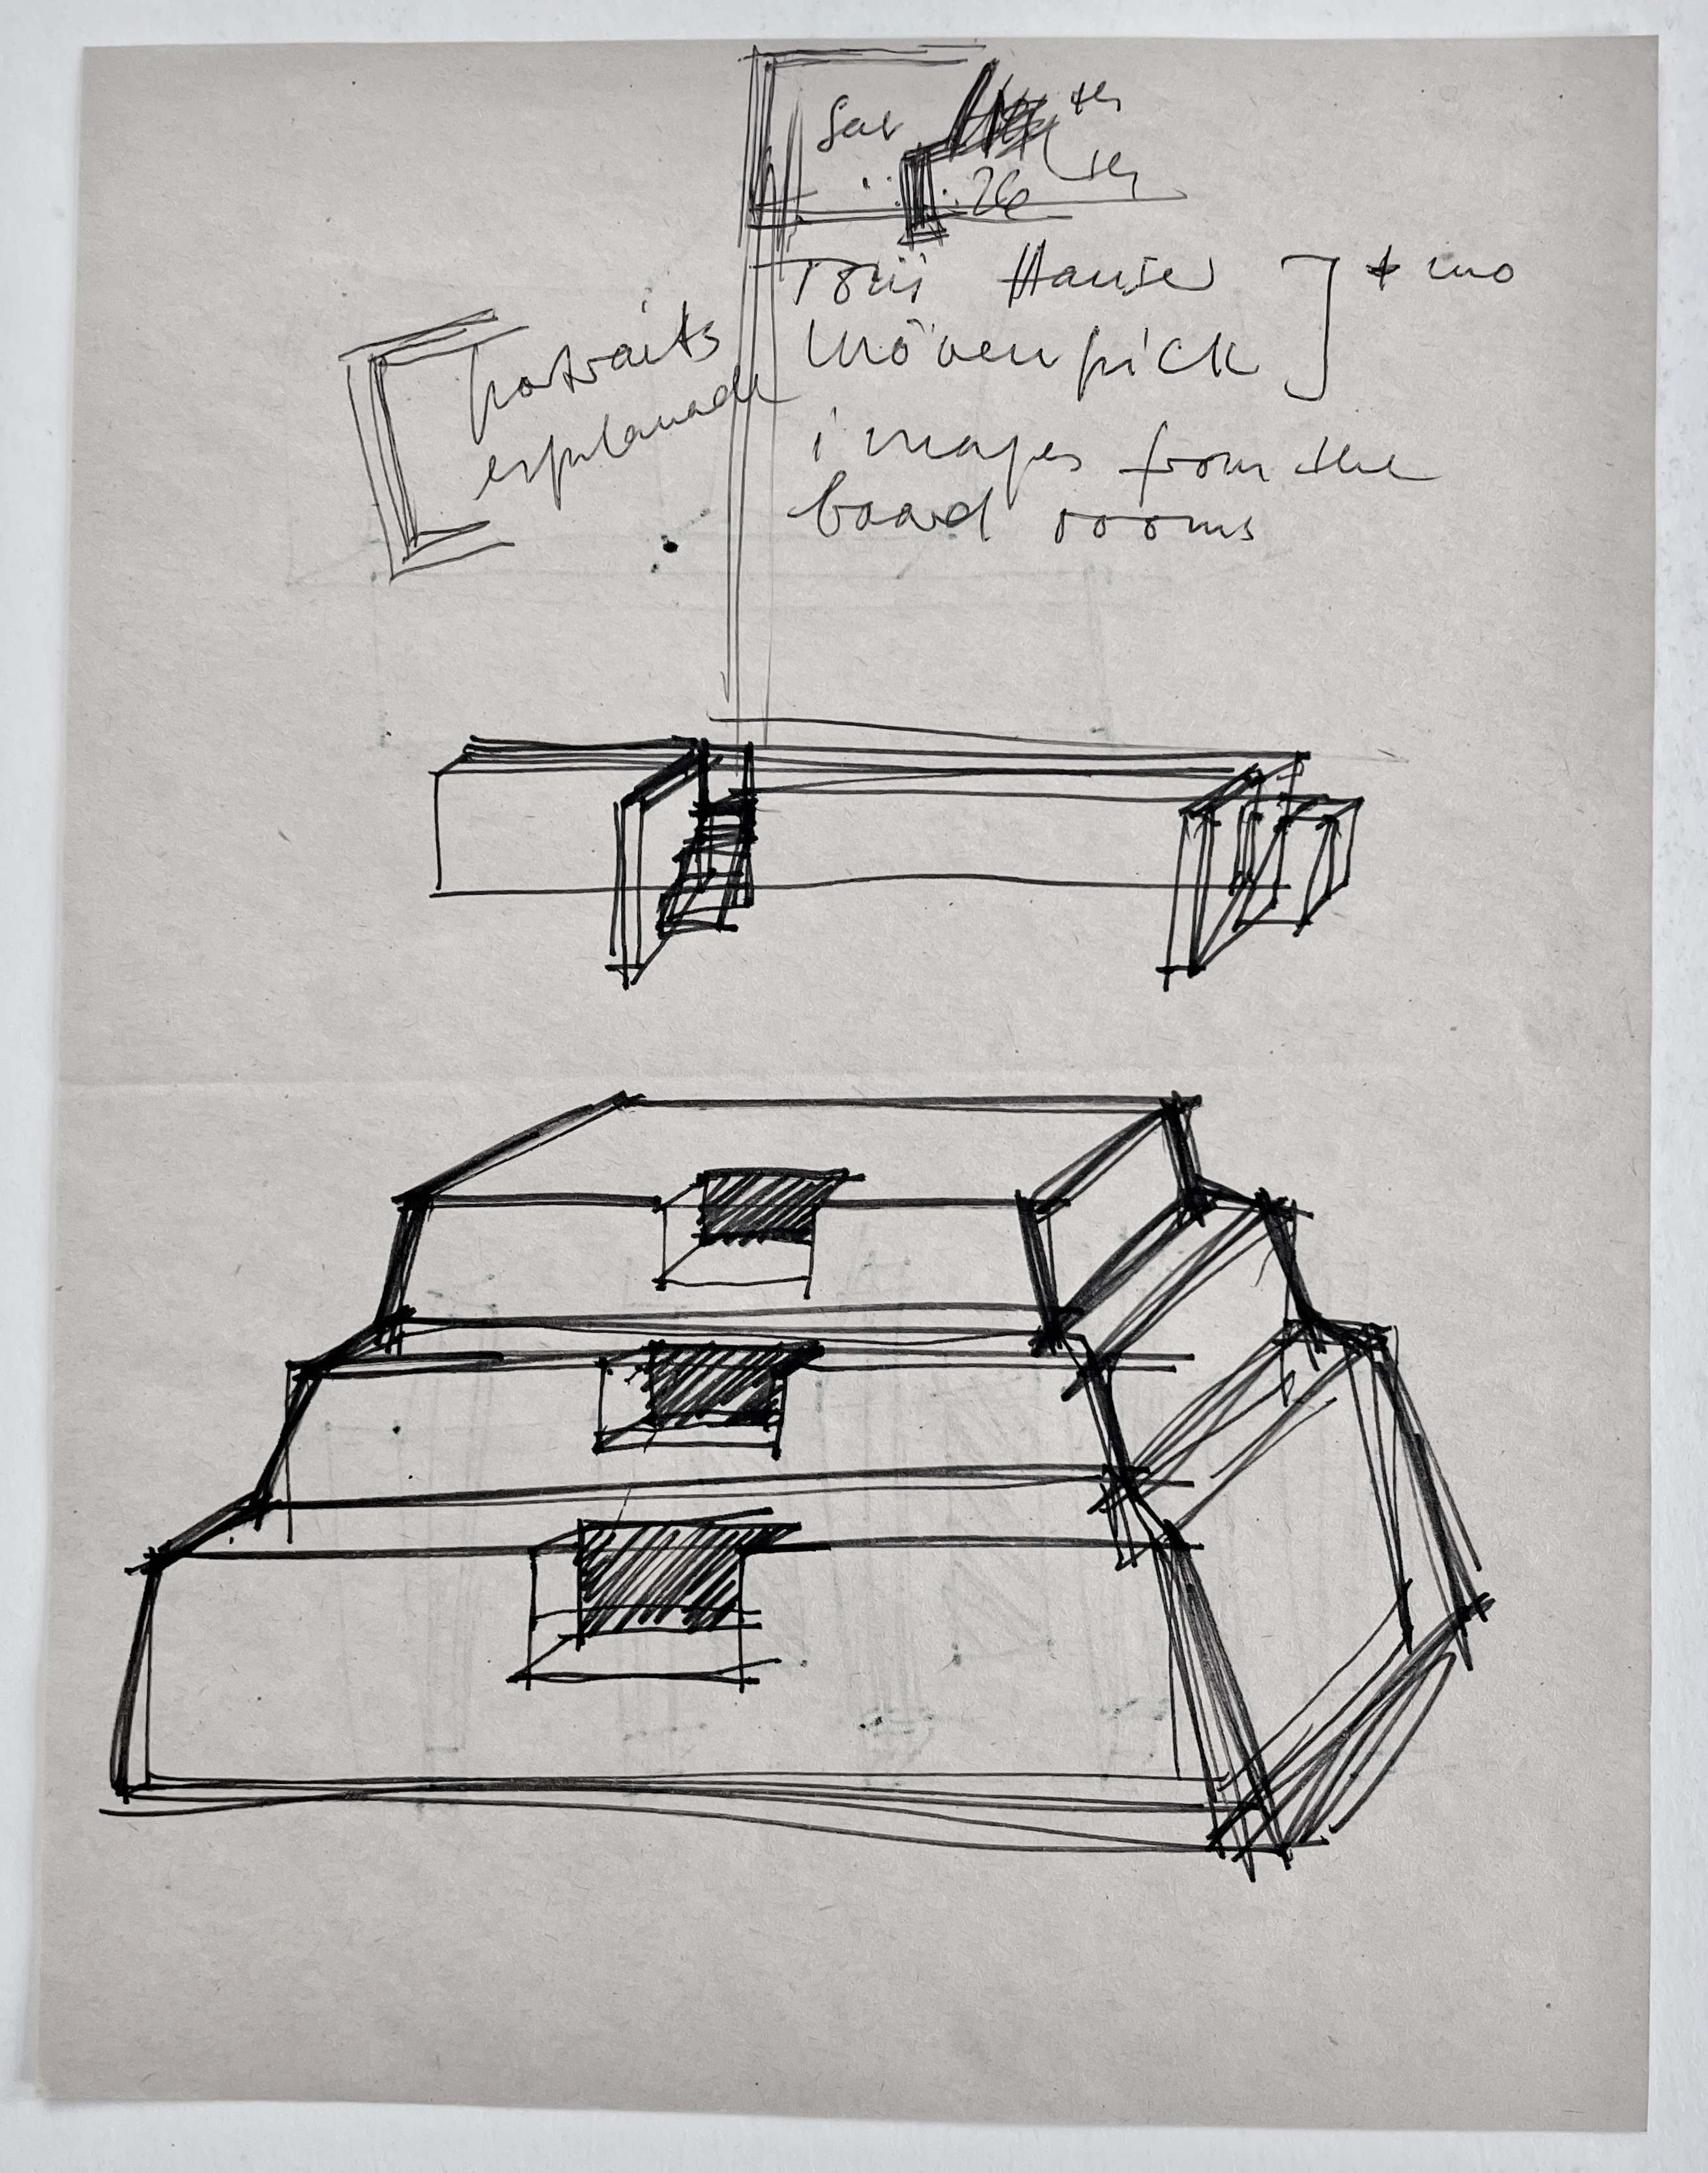 Sat th
26 th
portraits
esplanade
Toni Hauser
mövenpick
images from the
board rooms